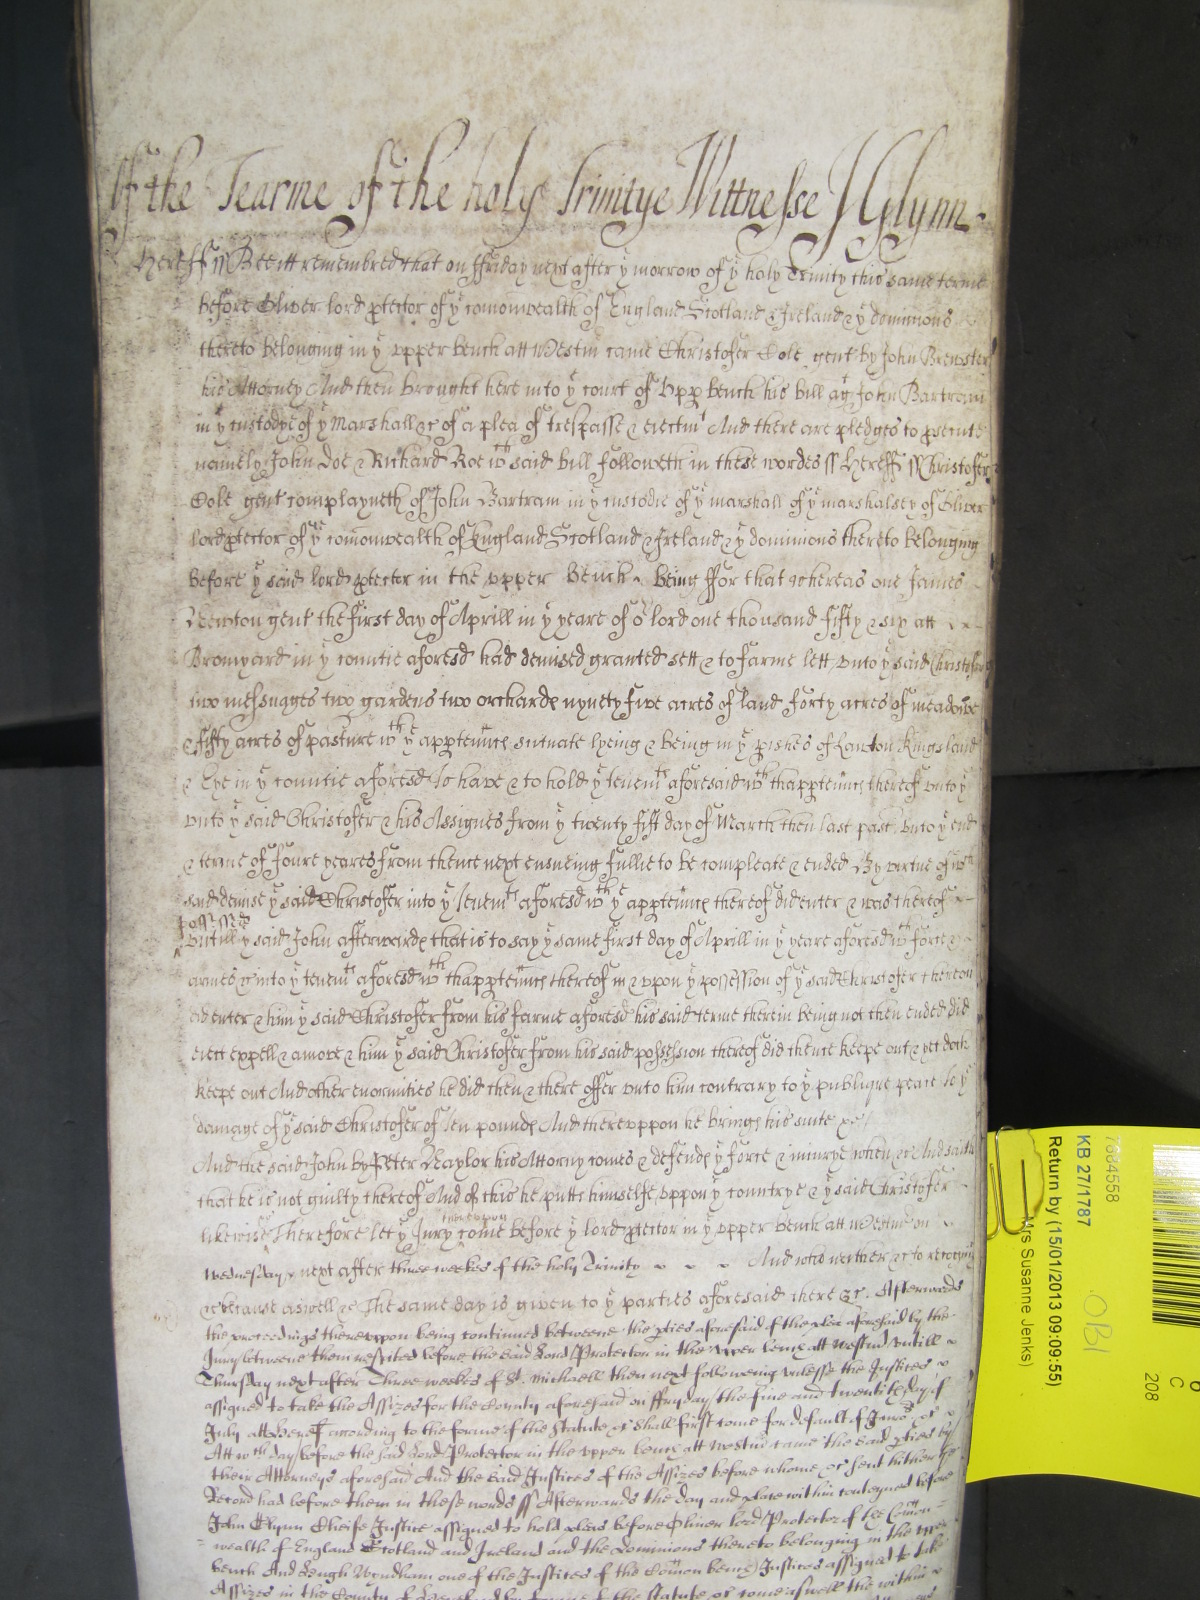 Of the Tearme of the holy Trinitye Wittnesse J Glynn
Hereff ss Bee itt remembred that on ffriday next after yͤ morrow of yͤ holy Trinity this same terme
before Oliver lord ptector of yͤ comonwealth of England Scotland & Ireland & yͤ dominions
thereto belonging in yͤ vpper bench att Westm̄ came Christofer Cole gent by John Brewster
his Attorney And then brought here into yͤ court of Vpp bench his bill agᵗ John Bartram
in yͤ custodye of yͤ Marshall &c of a plea of trespasse & eiectmᵗ And there are pledges to psecute
namely John Doe & Richard Roe wᶜʰ said bill followeth in these wordes ss Hereff ss Christofer
Cole gent complayneth of John Bartram in yͤ custodie of yͤ marshall of yͤ marshalsey of Oliver
lord ptector of yͤ comonwealth of England Scotland & Ireland & yͤ dominions thereto belonging
before yͤ said lord ptector in the vpper Bench being ffor that whereas one James
Newton gent the first day of Aprill in yͤ yeare of oʳ lord one thousand fifty & six att
Bromyard in yͤ countie aforesd had demised granted sett & to farme lett vnto yͤ said Christofer
two messuages two gardens two orchards nynety five acres of land forty acres of meadowe
& fifty acres of pasture wᵗʰ yͤ apptenn̄cs scituate lyeing & being in yͤ pishes of Lawton Kingsland
& Eye in yͤ countie aforesd To have & to hold yͤ tenemᵗˢ aforesaid wᵗʰ thapptenn̄cs thereof vnto yͤ
vnto yͤ said Christofer & his Assignes from yͤ twenty fift day of March then last past vnto yͤ end
& terme of foure yeares from thence next ensueing fullie to be compleate & ended By vertue of wᶜʰ
said demise yͤ said Christofer into yͤ tenemᵗˢ aforesd wᵗʰ yͤ apptenn̄cs thereof did enter & was thereof
possessed
vntill yͤ said John afterwards that is to say yͤ same first day of Aprill in yͤ yeare aforesd wᵗʰ force &
armes &c into yͤ tenemᵗˢ aforesd wᵗʰ thapptenn̄cs thereof in & vpon yͤ possession of yͤ said Christofer thereon
did enter & him yͤ said Christofer from his farme aforesd his said terme therein being not then ended did
eiect expell & amove & him yͤ said Christofer from his said possession thereof did thence keepe out & yet doth
keepe out And other enormities he did then & there offer vnto him contrary to yͤ publique peace to yͤ
damage of yͤ said Christofer of Ten pounds And therevppon he brings his suite &c
And the said John by Peter Naylor his Attorny comes & defends yͤ force & iniurye when &c And saith
that he is not guilty thereof And of this he putts himselfe vppon yͤ countrye & yͤ said Christofer
likewise Therefore let yͤ Jury therevpon come before yͤ lord ptector in yͤ vpper bench att Westm̄ on
Wednesday next after three weekes of the holy Trinity And who neither &c to recognize
&c because aswell &c The same day is given to yͤ parties aforesaid there &c. Afterwards
the proceedings therevppon being continued betweene the pties aforesaid of the plea aforesaid by the
Jury betweene them respited before the said Lord Protector in the vpper bench att Westm̄ vntill
Thursday next after Three weekes of Sᵗ Michaell then next following vnlesse the Justices
assigned to take the Assizes for the County aforesaid on ffryday the five and twentith day of
July att Heref according to the forme of the Statute &c shall first come for default of Jurors &c
Att wᶜʰ day before the said Lord Protector in the vpper bench att Westm̄ came the said pties by
their Attorneys aforesaid And the said Justices of the Assizes before whome &c sent hither
Record had before them in these words ss Afterwards the day and place within conteyned before
John Glynn Cheife Justice assigned to hold pleas before Oliver lord Protector of the Comon
wealth of England Scotland and Ireland and the Dominions thereto belonging in the vpper
bench And Hugh Wyndham one of the Justices of the Comon bench Justices assigned to take
Assizes in the County of Hereford by forme of the Statute &c come aswell the within
7884558
KB 27/1787
Return by (15/01/2013 09:09:55)
Mrs Susanne Jenks)
OBI
C
208